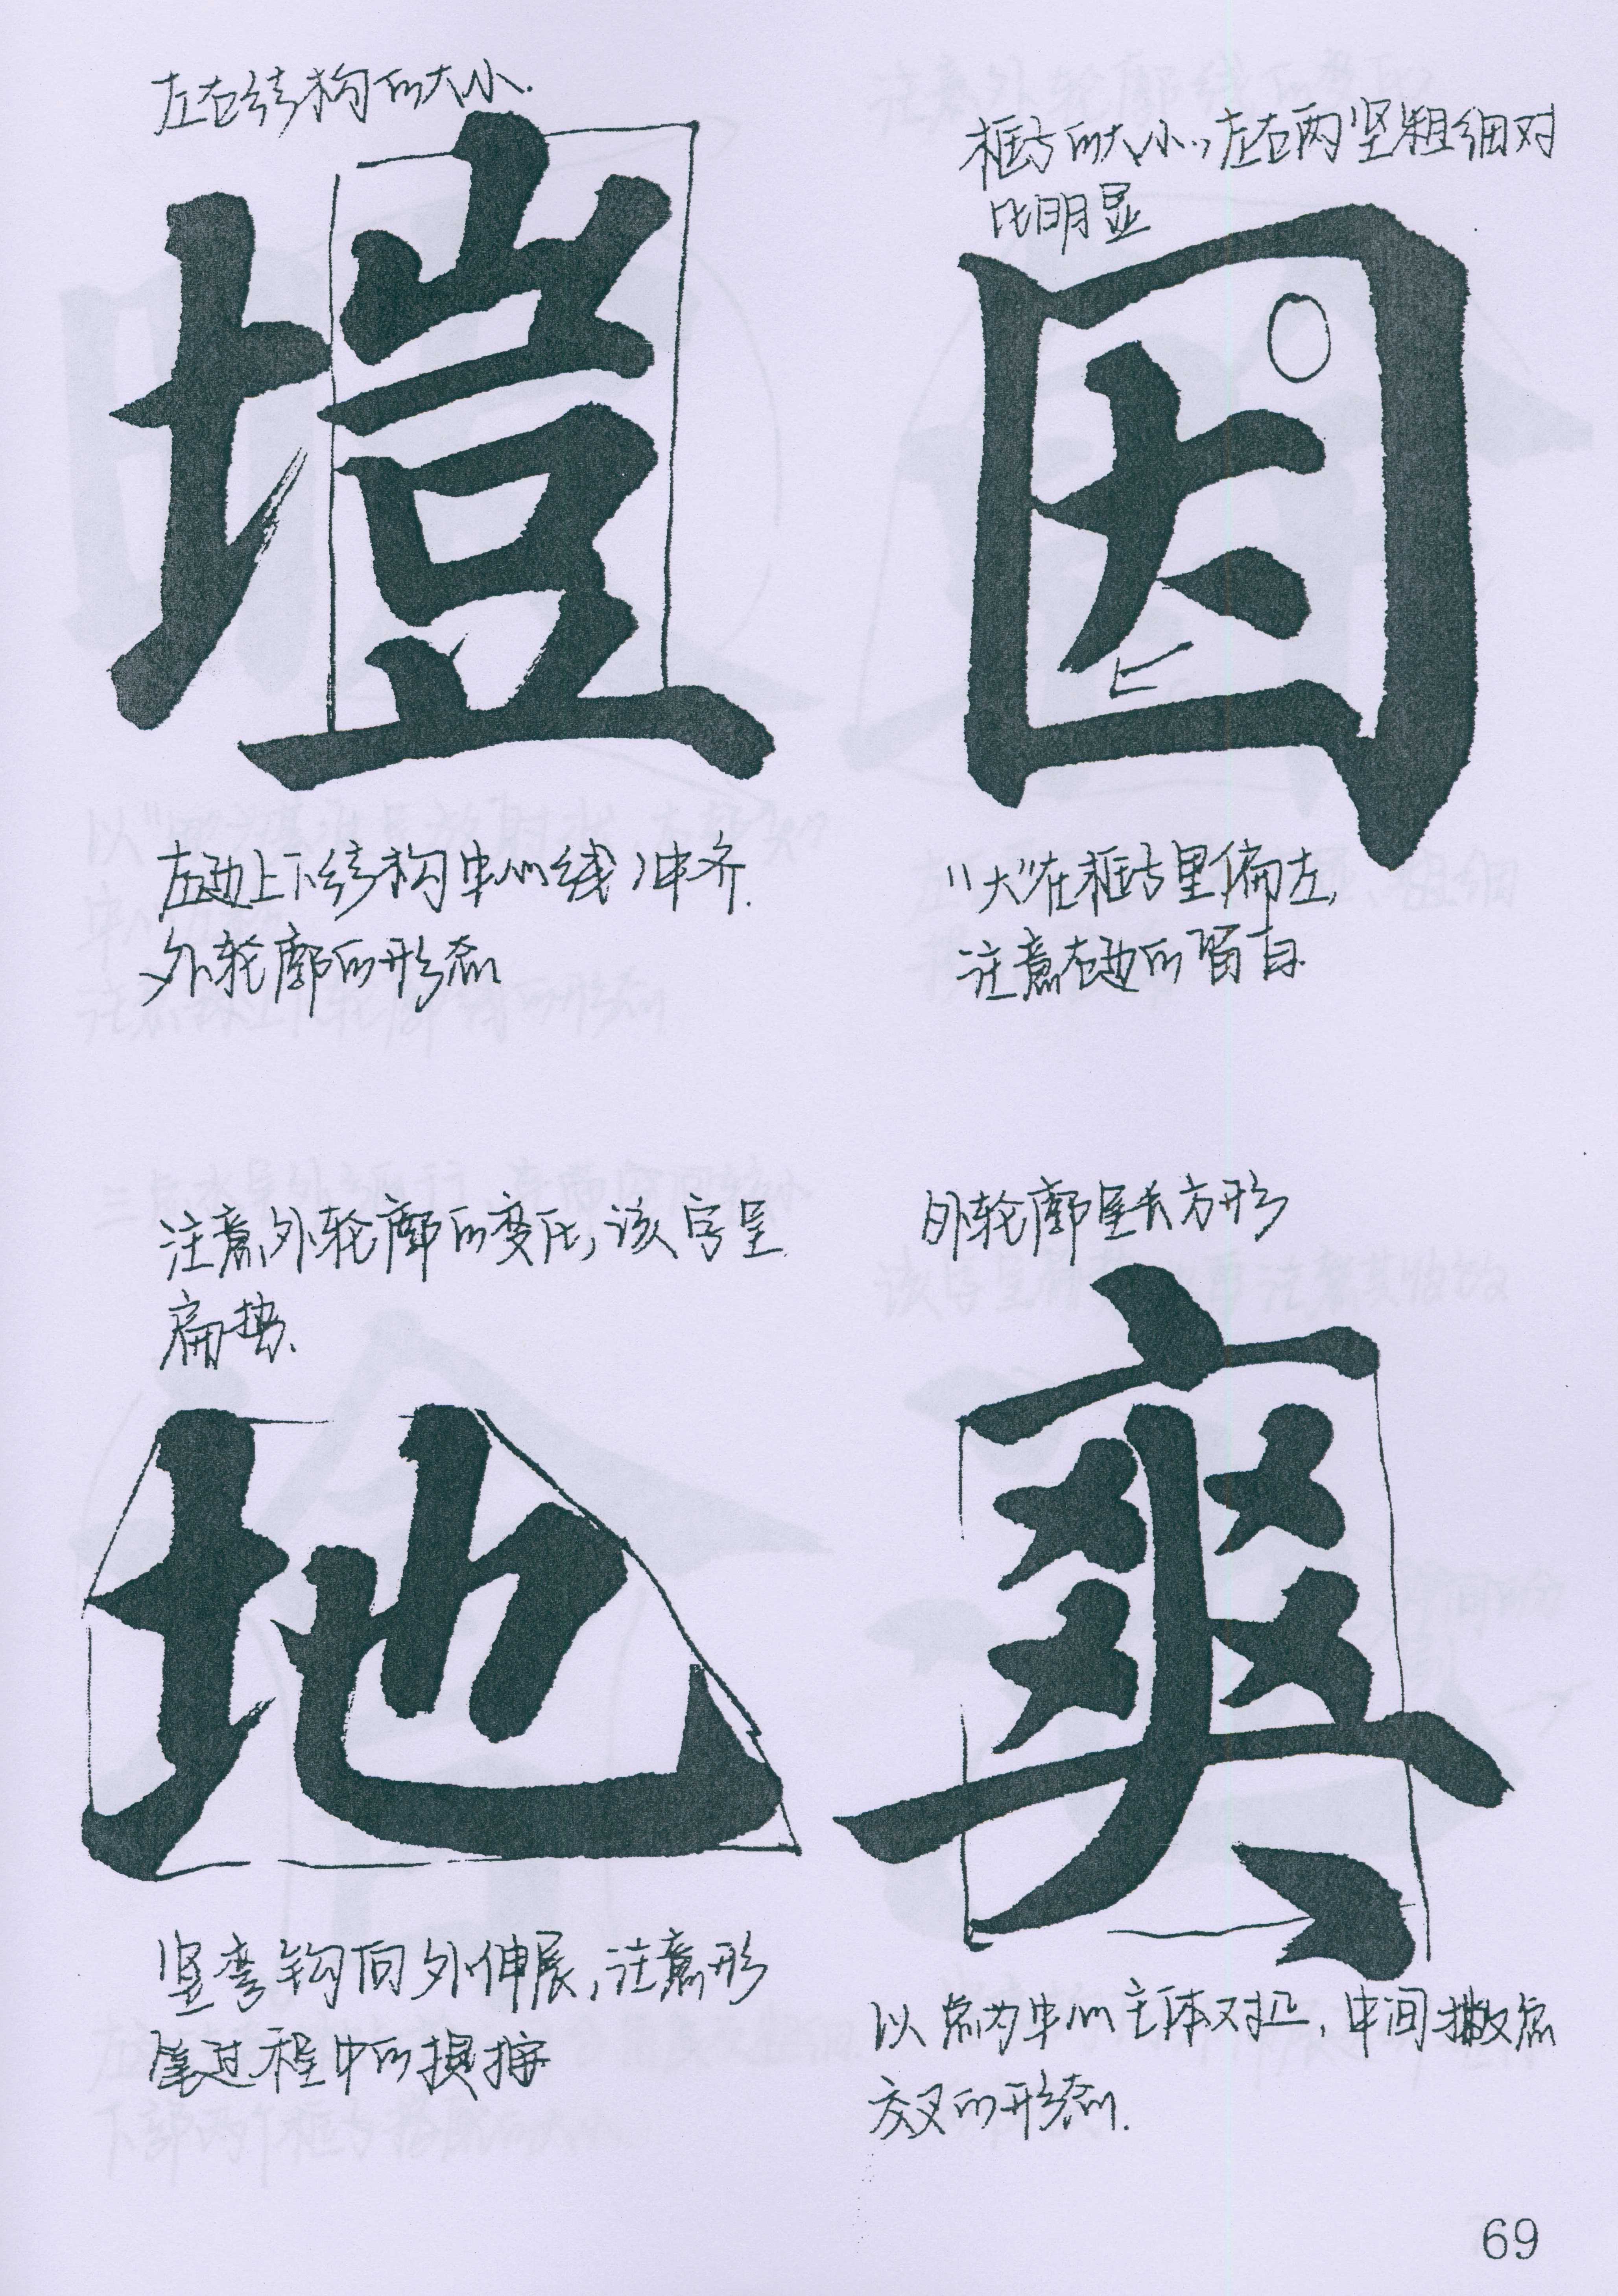 左右结构的大小.
塏
左边上下结构中心线冲齐.
外轮廓的形态
框方的大小,左右两竖粗细对
比明显
因
"大"在框方里偏左,
注意右边的留白.
注意外轮廓的变化,该字呈
扁势.
地
竖弯钩向外伸展,注意形
笔过程中的提按
外轮廓呈长方形
爽
以点为中心主体对正,中间撇点
交叉的形态.
69